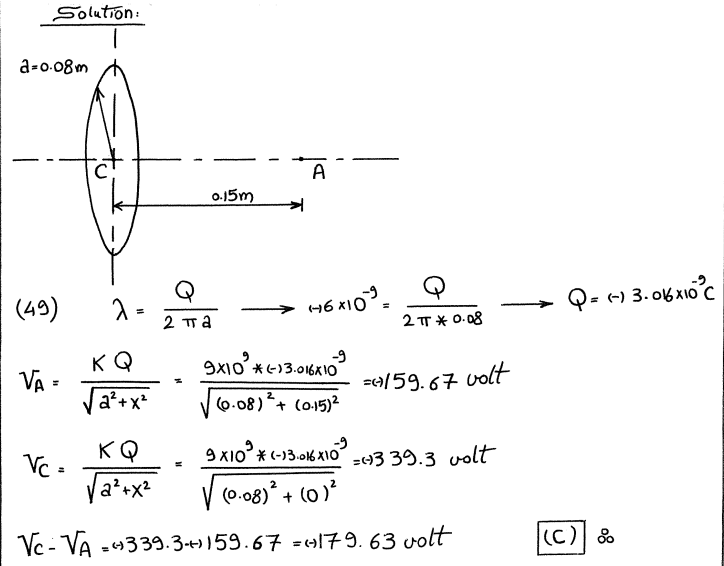 Solution:
a=0.08m
C
A
0.15m
(49) λ = Q / (2 π a) → (-)6×10⁻⁹ = Q / (2π * 0.08) → Q = (-) 3.016×10⁻⁹C
V_A = K Q / √(a²+x²) = 9×10⁹ * (-)3.016×10⁻⁹ / √((0.08)² + (0.15)²) = (-)159.67 volt
V_C = K Q / √(a²+x²) = 9×10⁹ * (-)3.016×10⁻⁹ / √((0.08)² + (0)²) = (-)339.3 volt
V_C - V_A = (-)339.3-(-)159.67 = (-)179.63 volt (C)